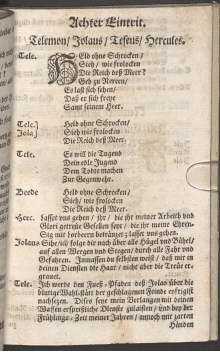 Achter Eintrit.
Telemon/ Jolaus/ Teseus/ Hercules.
Tele. HEld ohne Schrocken/
Sieh/ wie frolocken
Die Reich deß Meer?
Geh zu Nereen/
Es laßt sich sehen/
Daß er sich freye
Samt seinem Heer.
Tele. Held ohne Schrocken/
Jola. Sieh wie frolocken
Die Reich deß Meer.
Tele. Es will die Tugend
Dein edle Jugend
Dem Todte machen
Zur Gegenwehr.
Beede Held ohne Schrocken/
Sieh/ wie frolocken
Die Reich deß Meer.
Herc. Lasset uns gehen/ ihr/ die ihr meiner Arbeith und
Glori getreüe Gesellen seyt/ die ihr meine Ehren-
Sig mit vorhero bekrönet; lasset uns gehen.
Jolaus Sihe/ich folge dir nach über alle Hügel und Bühel/
auf allen Weegen und Stegen/ durch alle Fahr und
Gefahren. Inmassen du selbsten weist/ daß mir in
deinen Diensten die Haar/ nicht aber die Treüe er-
grauet.
Tele. Ich werde den Fueß-Pfaden deß Jolas über die
blutige Wahlstätt der geschlagenen Feinde erfreyigst
nachfolgen. Dises seye mein Verlangen mit deinen
Waffen ersprießliche Dienste zu laisten/ und bey der
Frühlings-Zeit meiner Jahren/ annoch mit zarten
Händen